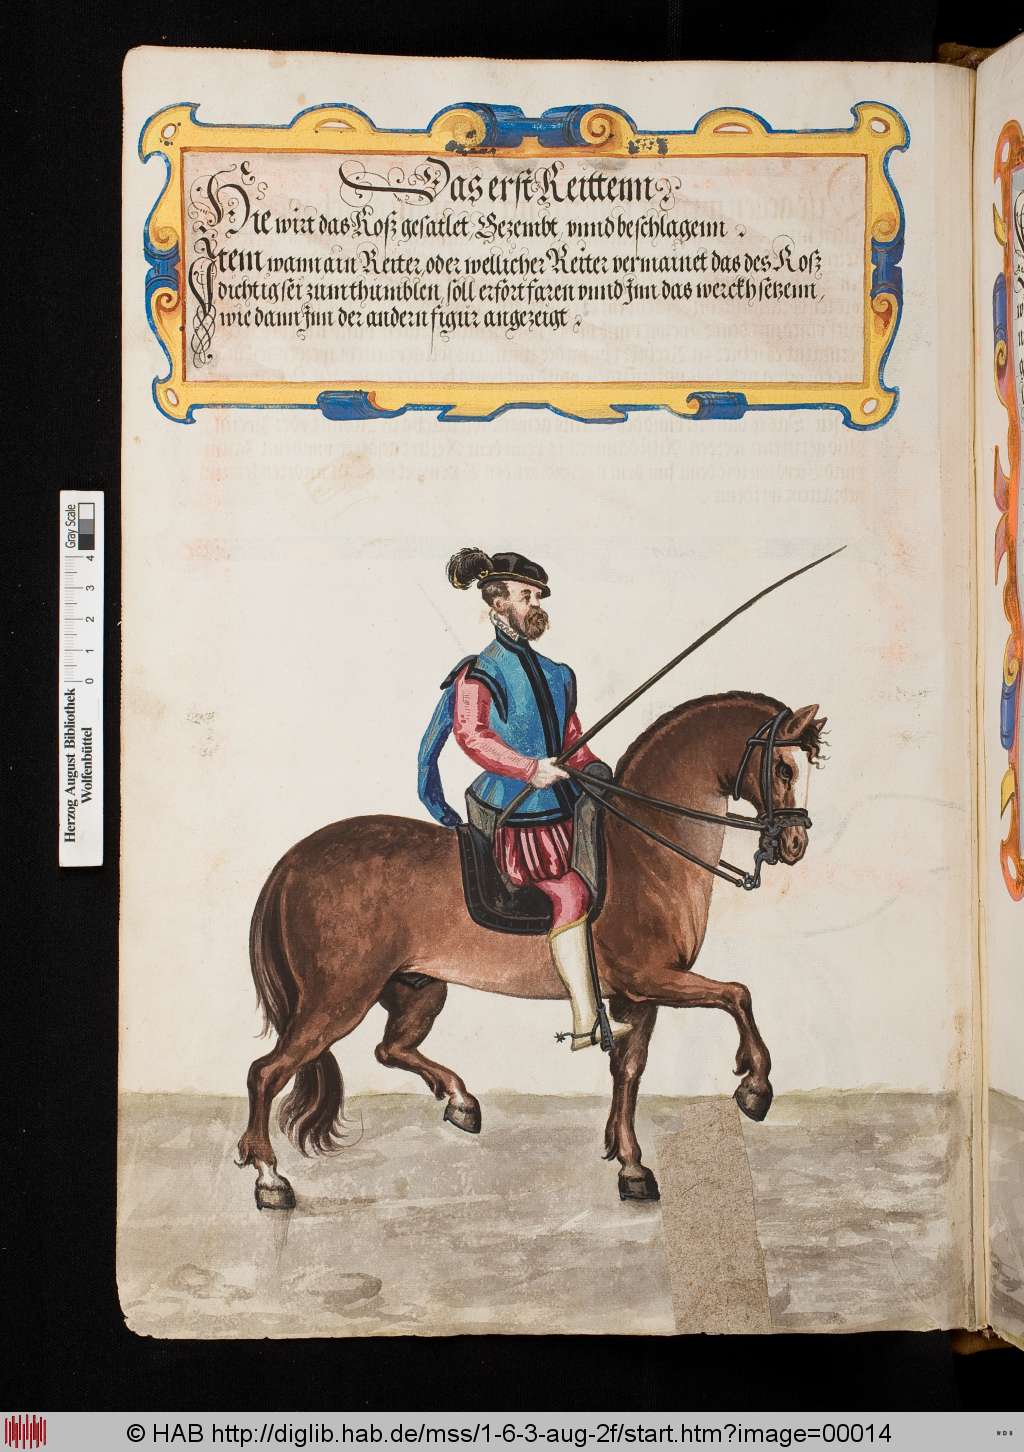 Das erst Reittenn
Hie wirt das Roß gesatlet, Gezembt, vnnd beschlagenn.
Item wann ain Reiter, oder wellicher Reiter vermainet das des Roß
dichtig sei zum thumblen, soll er fort faren vnnd Jnn das werckh setzenn,
wie dann Jnn der andern figur angezeigt.
Gray Scale
0 1 2 3 4
Herzog August Bibliothek
Wolfenbüttel
© HAB http://diglib.hab.de/mss/1-6-3-aug-2f/start.htm?image=00014